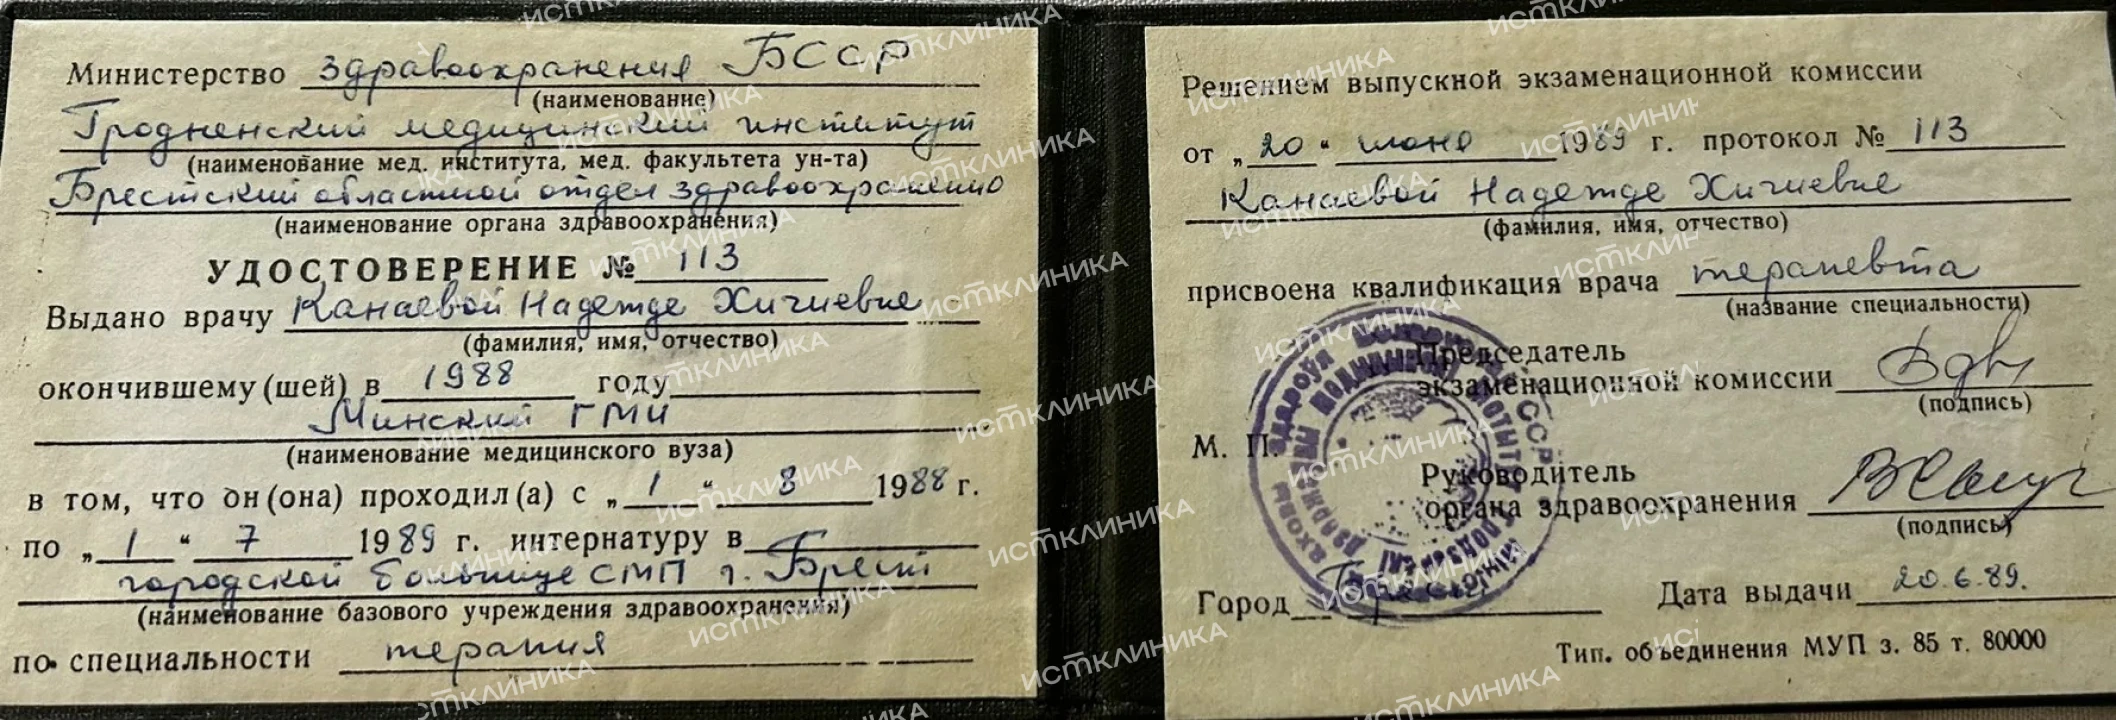 Министерство здравоохранения БССР
(наименование)
Гродненский медицинский институт
(наименование мед. института, мед. факультета ун-та)
Брестский областной отдел здравоохранению
(наименование органа здравоохранения)
УДОСТОВЕРЕНИЕ № 113
Выдано врачу Канаевой Надежде Хичиевне
(фамилия, имя, отчество)
окончившему (шей) в 1988 году
Минский ГМИ
(наименование медицинского вуза)
в том, что он (она) проходил (а) с „1“ 8 1988 г.
по „1“ 7 1989 г. интернатуру в
городской больнице СМП г. Брест
(наименование базового учреждения здравоохранения)
по специальности терапия
Решением выпускной экзаменационной комиссии
от „20“ июня 1989 г. протокол № 113
Канаевой Надежде Хичиевне
(фамилия, имя, отчество)
присвоена квалификация врача терапевта
(название специальности)
Председатель
экзаменационной комиссии
(подпись)
М. П.
Руководитель
органа здравоохранения
(подпись)
Город Брест
Дата выдачи 20.6.89.
Тип. объединения МУП з. 85 т. 80000
ИСТКЛИНИКА